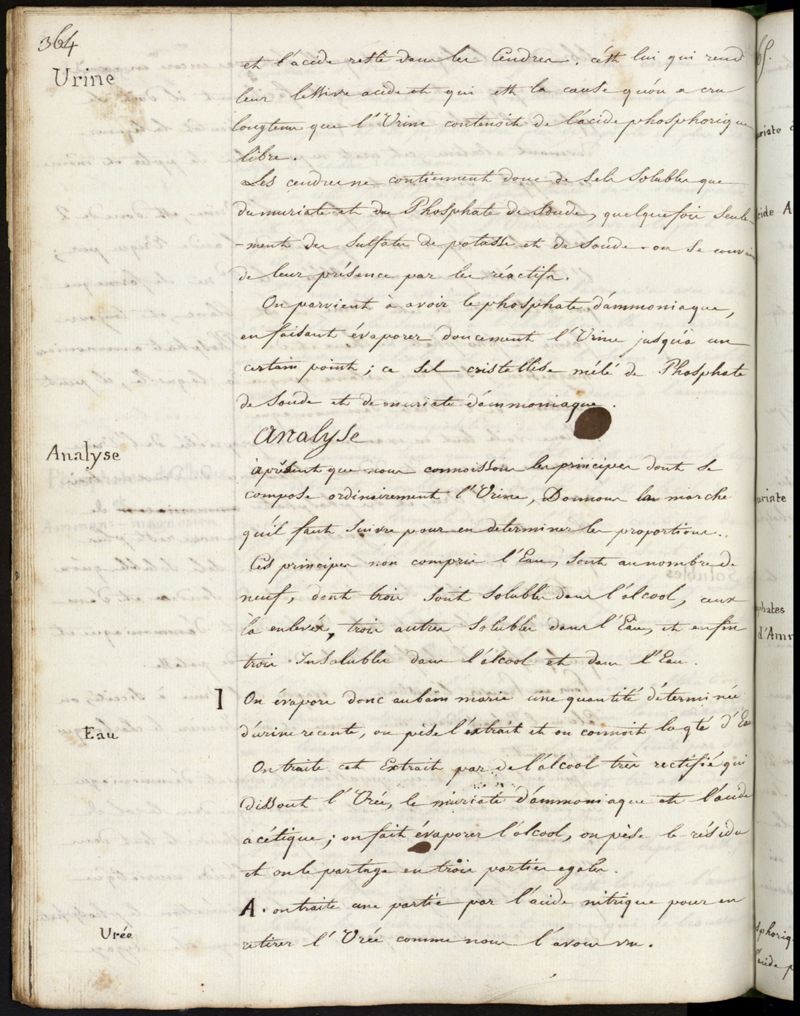 364
Urine
et l'acide reste dans les Cendres. c'est lui qui rend
leur lessive acide et qui est la cause qu'on a cru
longtems que l'Urine contenoit de l'acide phosphorique
libre.
Les cendres ne contiennent donc de sels solubles que
du muriate et du Phosphate de Soude, quelquefois seule-
-ment des Sulfates de potasse et de soude. on se
de leur présence par les réactifs.
On parvient à avoir le phosphate d'ammoniaque,
en faisant évaporer doucement l'Urine jusqu'à un
certain point; ce sel cristellise mêlé de Phosphate
de Soude et de muriate d'ammoniaque.
Analyse
Analyse
àprésent que nous connoissons les principes dont se
compose ordinirement l'Urine, Donnons la marche
qu'il faut suivre pour en determiner les proportions.
Ces principes non compris l'Eau, sont au nombre de
neuf, dont trois sont solubles dans l'alcool, ceux
là enlevés, trois autres solubles dans l'Eau, et enfin
trois Insolubles dans l'alcool et dans l'Eau.
1 On évapore donc au bain marie une quantité déterminée
Eau
d'urine recente, on pèse l'extrait et on connoit la qté d'Eau
On traite cet Extrait par de l'alcool très rectifié qui
dissout l'Urée, le muriate d'ammoniaque et l'acide
acétique; on fait évaporer l'alcool, on pèse le résidu
et on le partage en trois parties egales.
A. on traite une partie par l'acide nitrique pour en
Urée
retirer l'Urée comme nous l'avons vu.